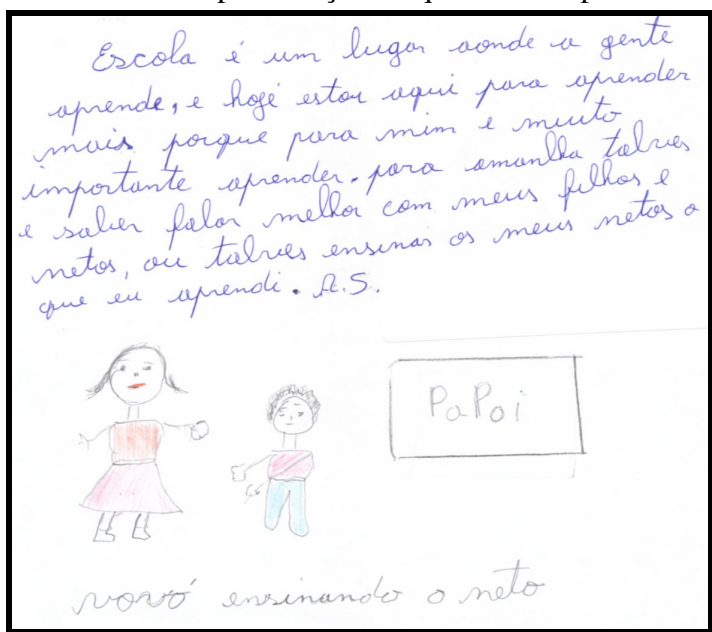 Escola é um lugar aonde a gente
aprende, e hoje estou aqui para aprender
mais porque para mim e muito
importante aprender. para amanlha talves
e saber falar melhor com meus filhos e
netos, ou talves ensinar os meus netos o
que eu aprendi. A.S.
PaPai
vovó ensinando o neto